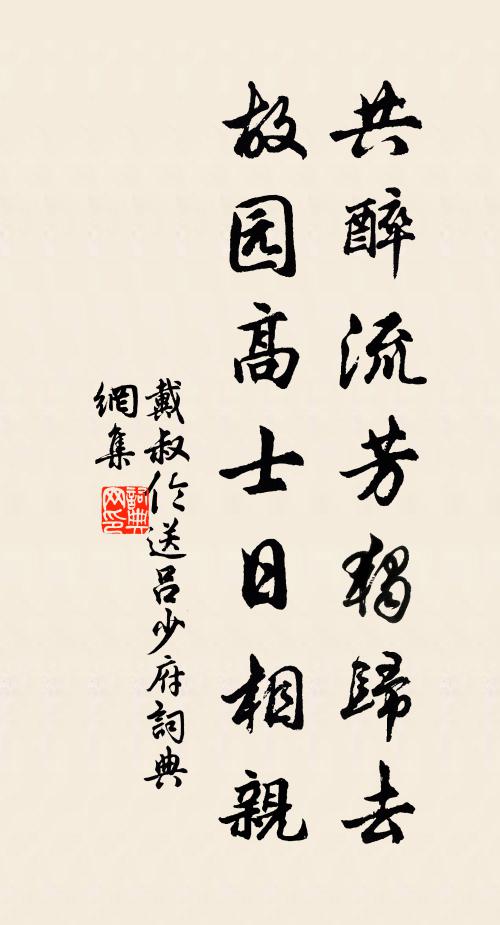 共醉流芳獨歸去
故园高士日相親
戴叔伦送呂少府詞典
網集
詞典
网印